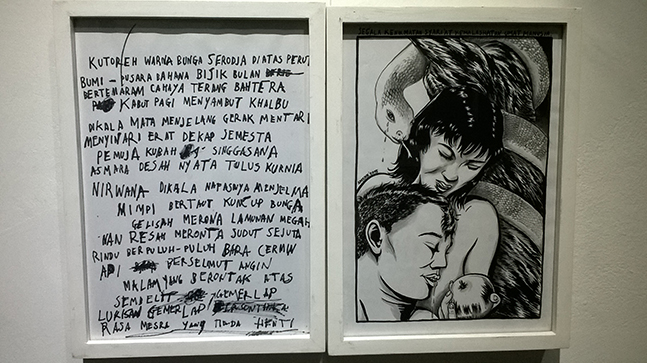 KUTOREH WARNA BUNGA SERODJA DIATAS PERUT
BUMI - PUSARA BAHANA BISIK BULAN
BERTEMARAM CAHAYA TERANG BAHTERA
KABUT PAGI MENYAMBUT KHALBU
DIKALA MATA MENJELANG GERAK MENTARI
MENYINARI ERAT DEKAP SEMESTA
PEMUJA KUBAH SINGGASANA
ASMARA DESAH NYATA TULUS KURNIA
NIRWANA DIKALA NAPASNYA MENJELMA
MIMPI BERTAUT KUNCUP BUNGA
GELISAH MERONA LAMUNAN MEGAH
NAN RESAH MERONTA SUDUT SEJUTA
RINDU BERPULUH-PULUH BARA CERMIN
API BERSELIMUT ANGIN
MALAM YANG BERONTAK ATAS
GEMERLAP
LUKISAN GEMERLAP
RASA MESRA YANG TIADA HENTI
SEGALA